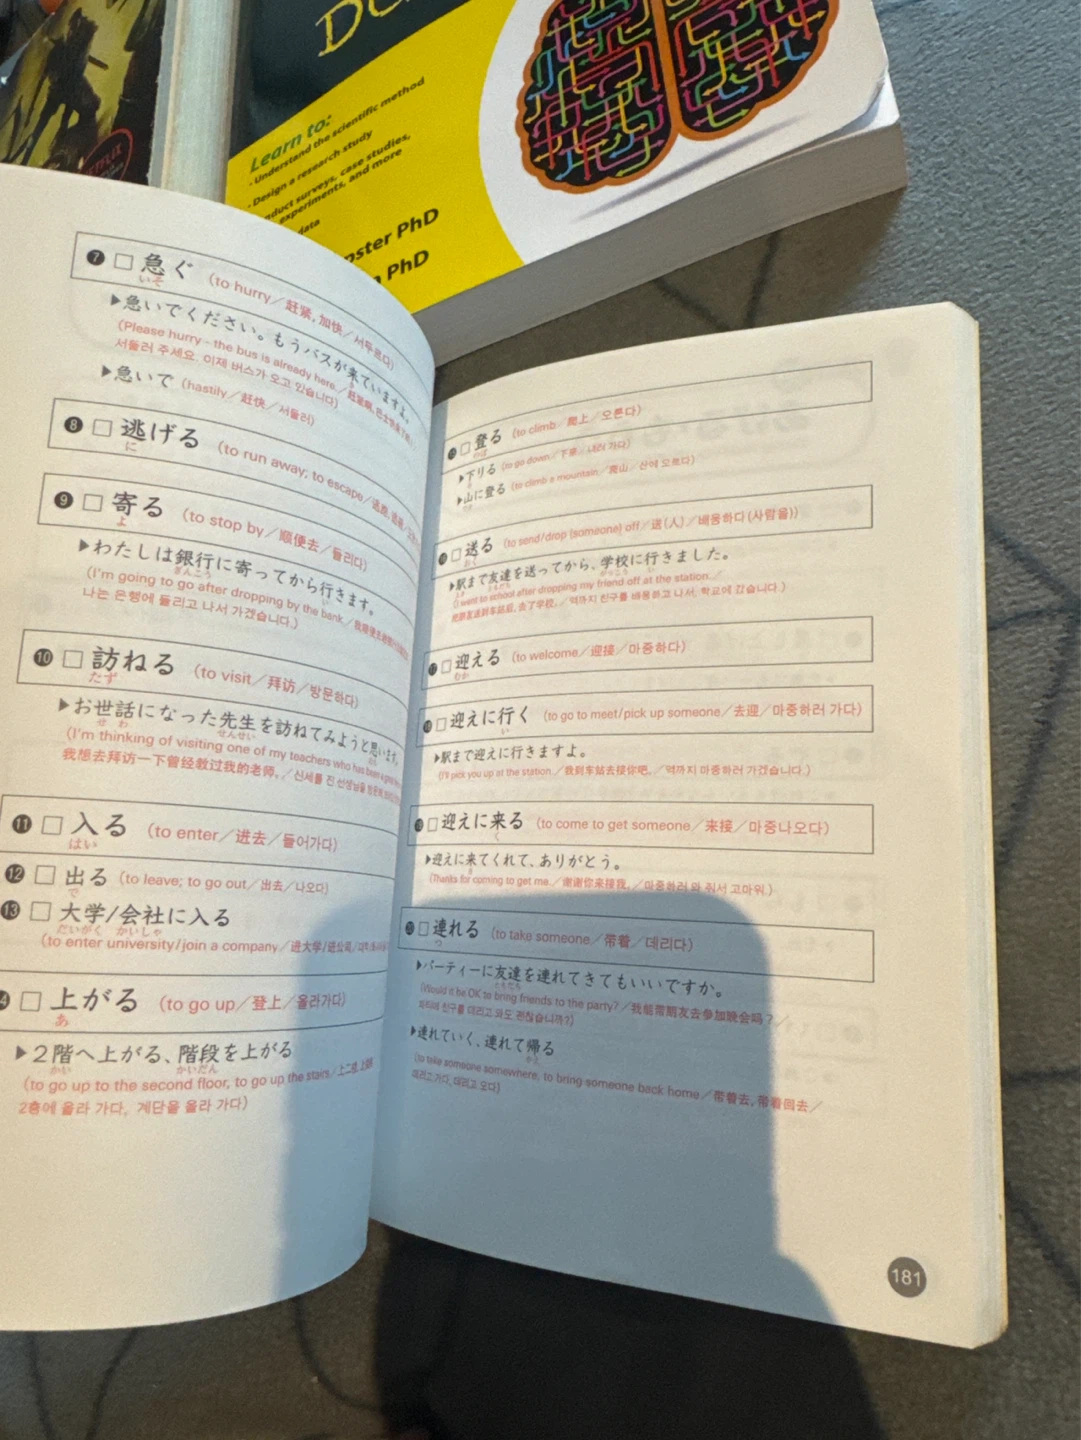 DU
Learn to:
• Understand the scientific method
• Design a research study
nduct surveys, case studies,
experiments, and more
data
PhD
PhD
NETFLIX
❼ □ 急ぐ (to hurry／赶紧,加快／서두르다)
いそ
▶急いでください。もうバスが来ていますよ。
(Please hurry - the bus is already here.／
서둘러 주세요. 이제 버스가 오고 있습니다)
▶急いで (hastily／赶快／서둘러)
❽ □ 逃げる (to run away; to escape／
に
❾ □ 寄る (to stop by／顺便去／들리다)
よ
▶わたしは銀行に寄ってから行きます。
ぎんこう い
(I'm going to go after dropping by the bank.／
나는 은행에 들리고 나서 가겠습니다.)
❿ □ 訪ねる (to visit／拜访／방문하다)
たず
▶お世話になった先生を訪ねてみようと思います。
せ わ せんせい
(I'm thinking of visiting one of my teachers who has been
我想去拜访一下曾经教过我的老师。／신세를 진 선생님을
⓫ □ 入る (to enter／进去／들어가다)
はい
⓬ □ 出る (to leave; to go out／出去／나오다)
で
⓭ □ 大学/会社に入る
だいがく かいしゃ
(to enter university/join a company／进大学/进公司／
4 □ 上がる (to go up／登上／올라가다)
あ
▶２階へ上がる、階段を上がる
かい かいだん
(to go up to the second floor, to go up the stairs／
2층에 올라 가다, 계단을 올라 가다)
□ 登る (to climb／爬上／오른다)
のぼ
▶下りる (to go down／下来／내려 가다)
▶山に登る (to climb a mountain／爬山／산에 오르다)
□ 送る (to send/drop (someone) off／送(人)／배웅하다(사람을))
おく
▶駅まで友達を送ってから、学校に行きました。
(I went to school after dropping my friend off at the station.／
把朋友送到车站后,去了学校。／역까지 친구를 배웅하고 나서, 학교에 갔습니다.)
□ 迎える (to welcome／迎接／마중하다)
むか
□ 迎えに行く (to go to meet/pick up someone／去迎／마중하러 가다)
い
▶駅まで迎えに行きますよ。
(I'll pick you up at the station.／我到车站去接你吧。／역까지 마중하러 가겠습니다.)
□ 迎えに来る (to come to get someone／来接／마중나오다)
く
▶迎えに来てくれて、ありがとう。
(Thanks for coming to get me.／谢谢你来接我。／마중하러 와 줘서 고마워.)
□ 連れる (to take someone／带着／데리다)
つ
▶パーティーに友達を連れてきてもいいですか。
ともだち
(Would it be OK to bring friends to the party?／我能带朋友去参加晚会吗？／
파티에 친구를 데리고 와도 괜찮습니까?)
▶連れていく、連れて帰る
かえ
(to take someone somewhere, to bring someone back home／带着去,带着回去／
데리고 가다, 데리고 오다)
181